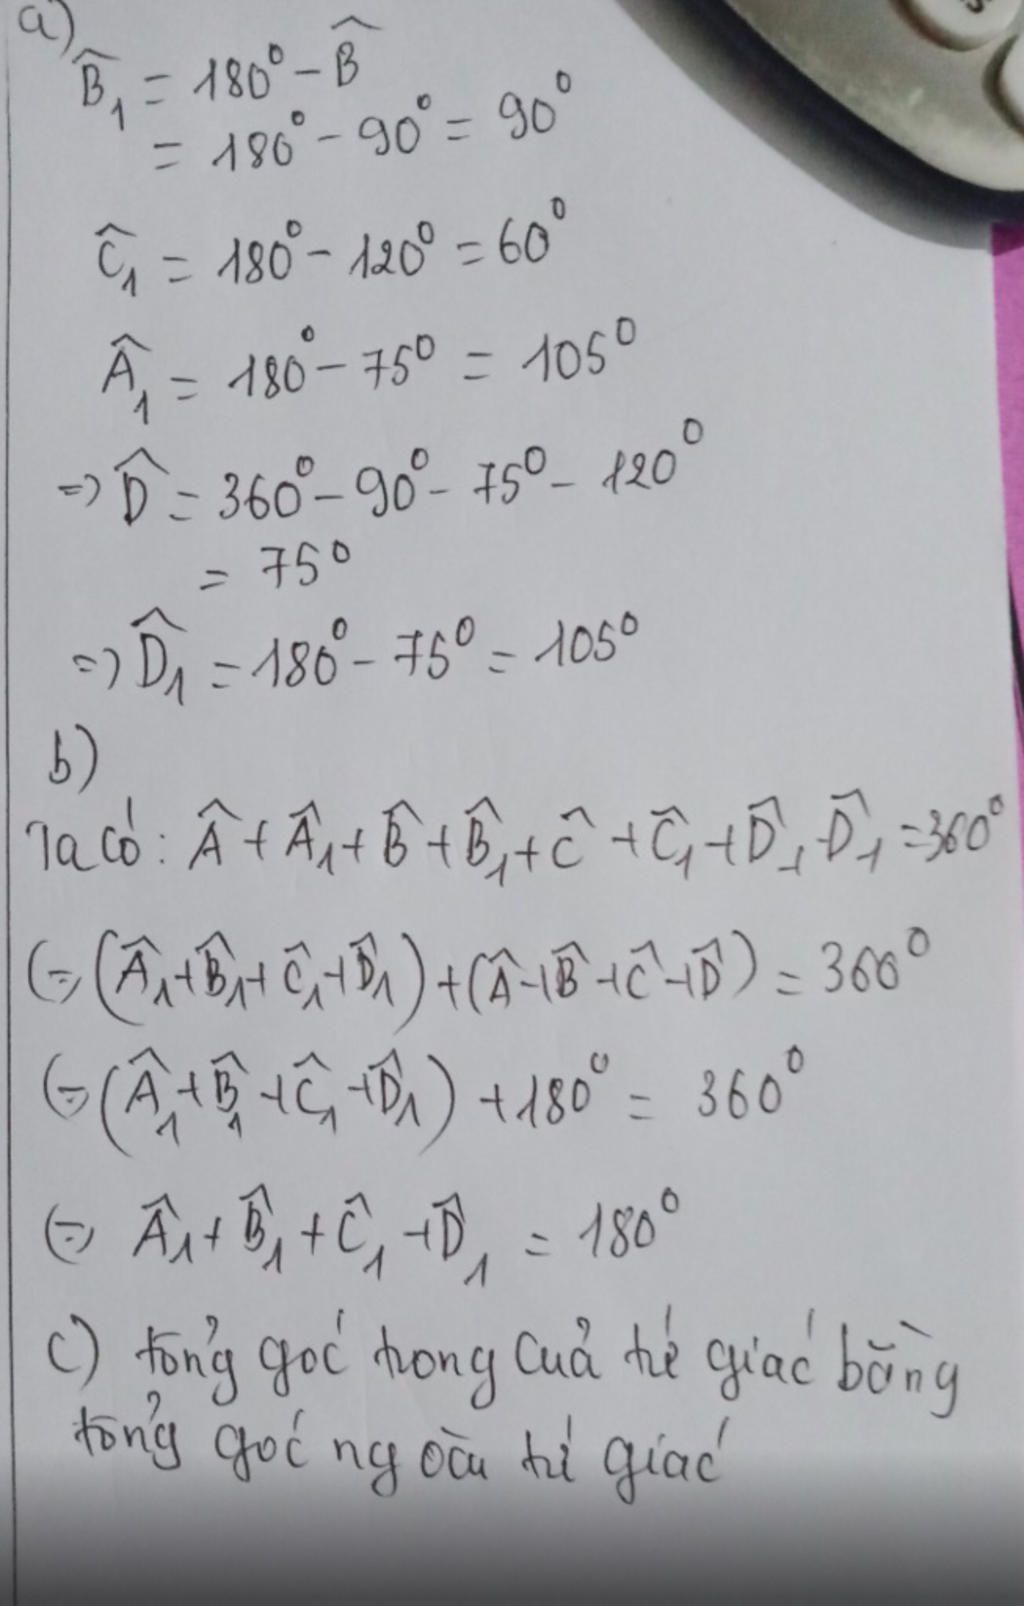 a)
B̂₁ = 180⁰ - B̂
= 180⁰ - 90⁰ = 90⁰
Ĉ₁ = 180⁰ - 120⁰ = 60⁰
Â₁ = 180⁰ - 75⁰ = 105⁰
=> D̂ = 360⁰ - 90⁰ - 75⁰ - 120⁰
= 75⁰
=> D̂₁ = 180⁰ - 75⁰ = 105⁰
b)
Ta có: Â + Â₁ + B̂ + B̂₁ + Ĉ + Ĉ₁ + D̂₁ D̂₁ = 360⁰
(=> (Â₁ + B̂₁ + Ĉ₁ + D̂₁) + (Â + B̂ + Ĉ + D̂) = 360⁰
(=> (Â₁ + B̂₁ + Ĉ₁ + D̂₁) + 180⁰ = 360⁰
(=> Â₁ + B̂₁ + Ĉ₁ + D̂₁ = 180⁰
c) tổng góc trong của tứ giác bằng
tổng góc ngoài tứ giác